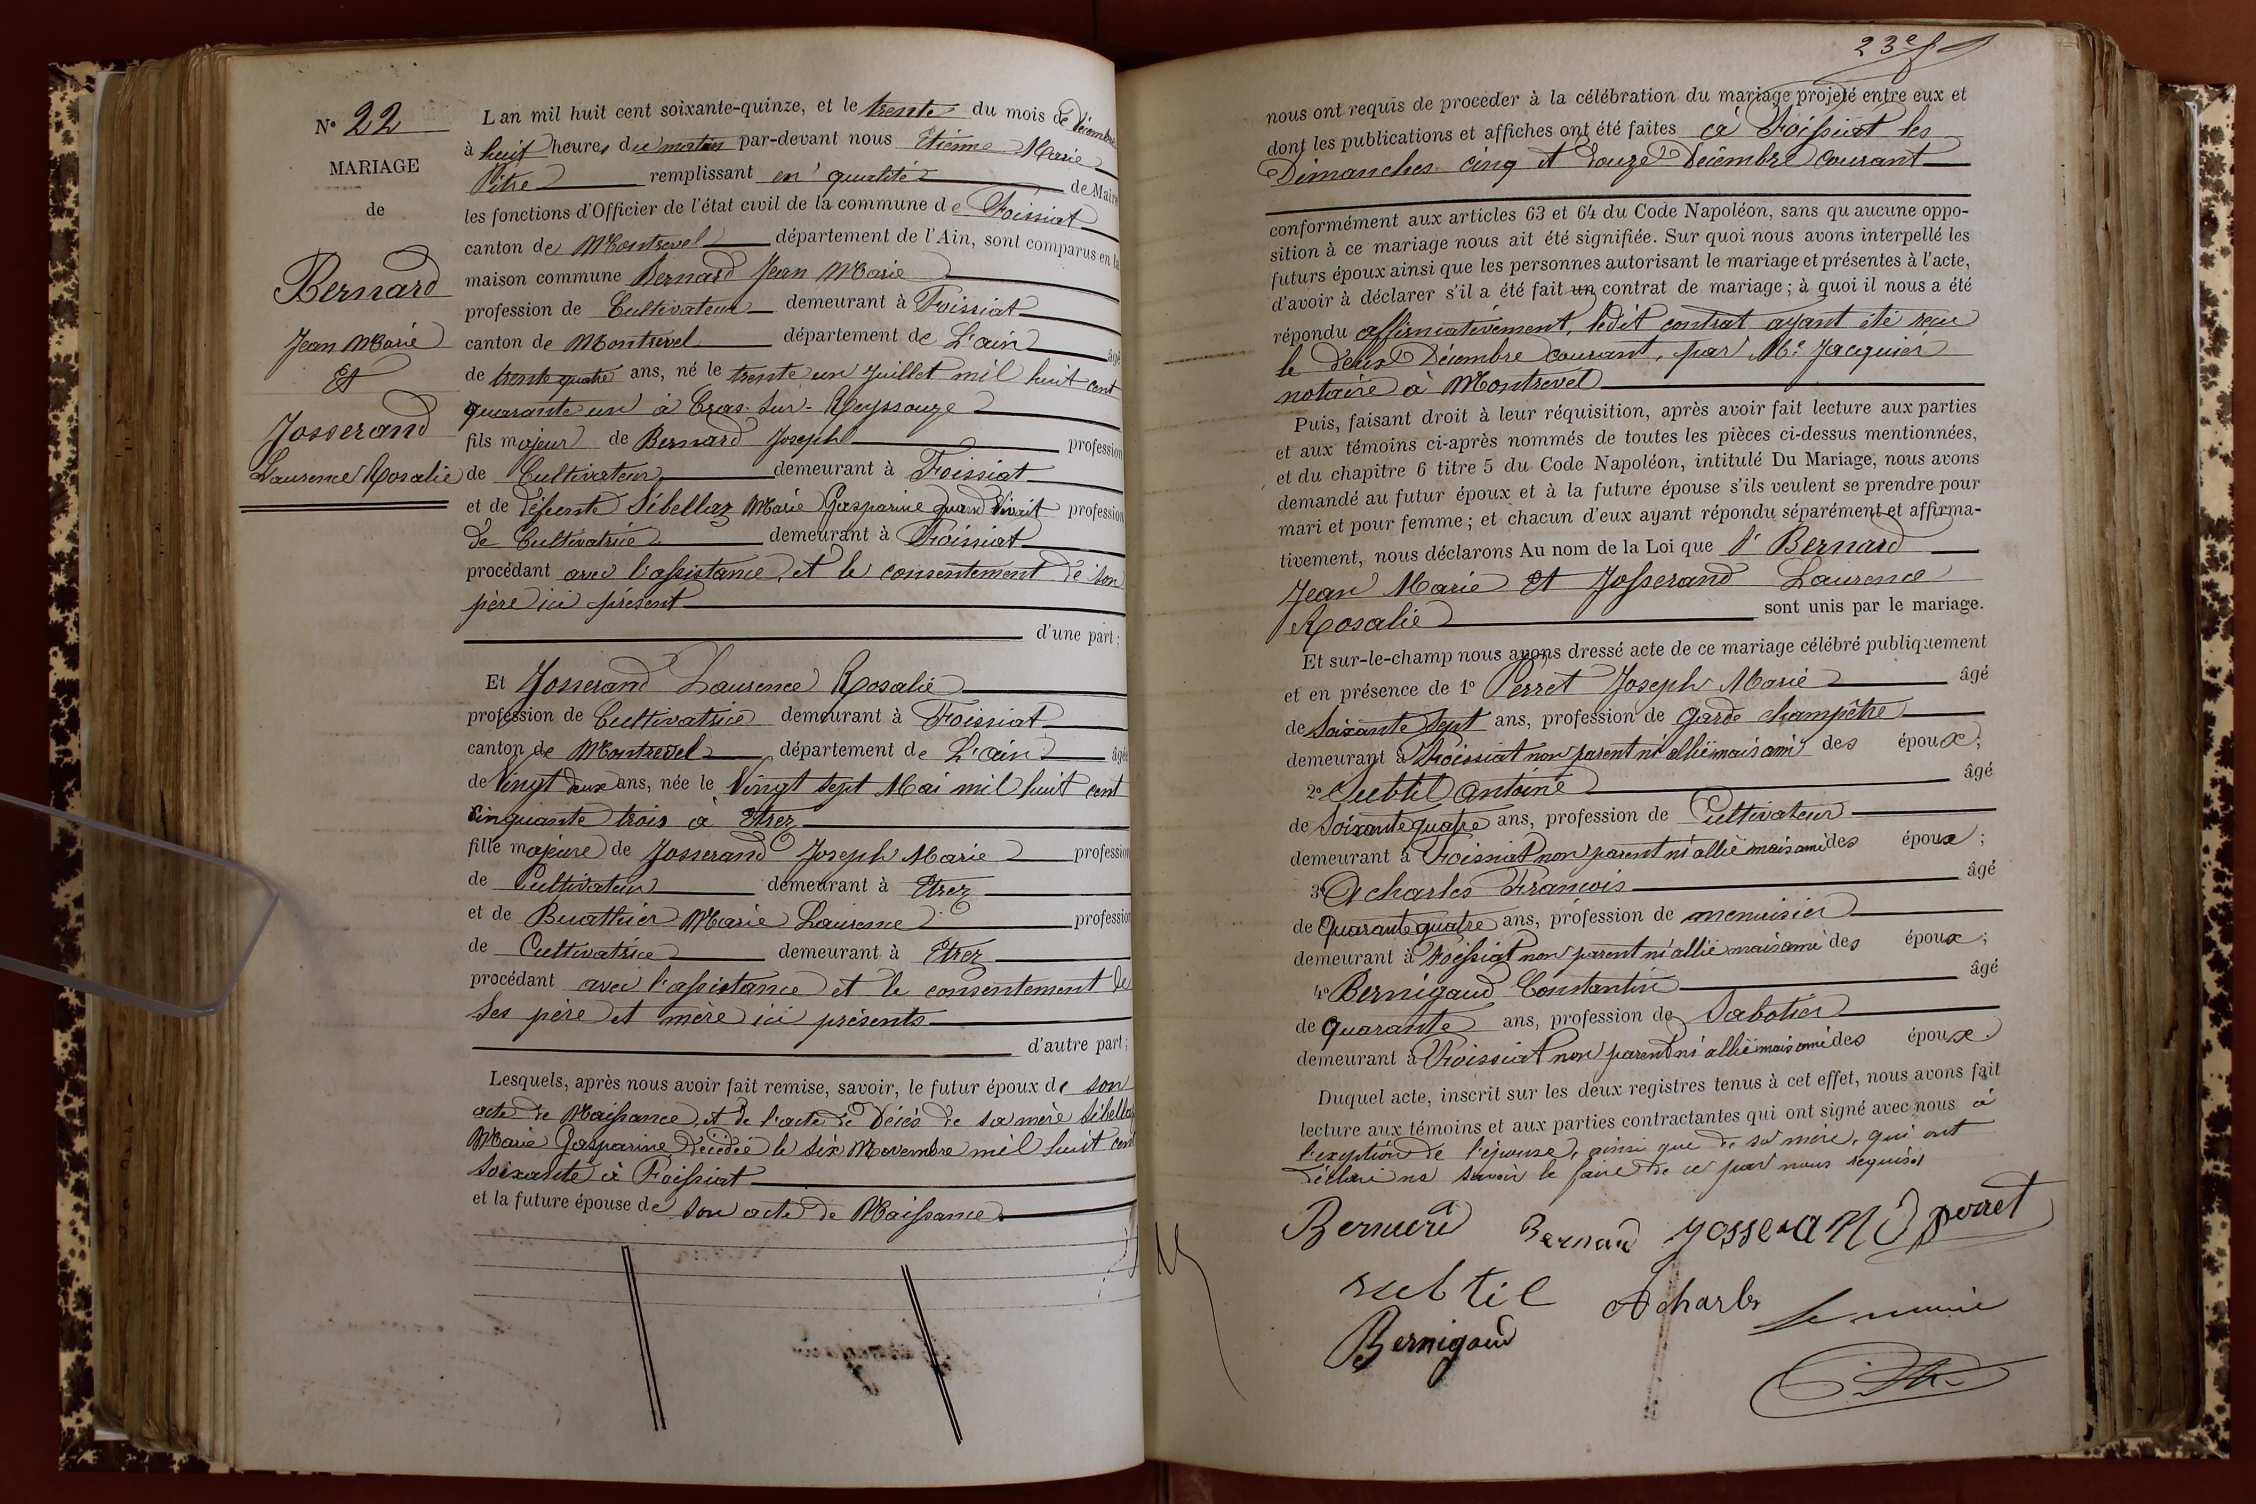 N° 22
MARIAGE
de
Bernard
Jean Marie
Et
Josserand
Laurence Rosalie
L'an mil huit cent soixante-quinze, et le trente du mois de Décembre
à huit heures du matin par-devant nous Etienne Marie
Pitre remplissant en qualité de Maire
les fonctions d'Officier de l'état civil de la commune de Foissiat
canton de Montrevel département de l'Ain, sont comparus en la
maison commune Bernard Jean Marie
profession de Cultivateur demeurant à Foissiat
canton de Montrevel département de L'ain âgé
de trente quatre ans, né le trente un Juillet mil huit cent
quarante un à Cras-Sur-Reyssouze
fils majeur de Bernard Joseph profession
de Cultivateur demeurant à Foissiat
et de défunte Sébellaz Marie Gasparine quand vivait profession
de Cultivatrice demeurant à Foissiat
procédant avec l'assistance, et le consentement de son
père ici présent
d'une part;
Et Josserand Laurence Rosalie
profession de Cultivatrice demeurant à Foissiat
canton de Montrevel département de L'ain âgée
de Vingt deux ans, née le Vingt sept Mai mil huit cent
Cinquante trois à Etrez
fille majeure de Josserand Joseph Marie profession
de Cultivateur demeurant à Etrez
et de Buathier Marie Laurence profession
de Cultivatrice demeurant à Etrez
procédant avec l'assistance et le consentement de
Ses père et mère ici présents
d'autre part;
Lesquels, après nous avoir fait remise, savoir, le futur époux de son
acte de Naissance, et de l'acte de Décès de sa mère Sébellaz
Marie Gasparine décédée le six Novembre mil huit cent
soixante à Foissiat
et la future épouse de son acte de Naissance
23e f
nous ont requis de procéder à la célébration du mariage projeté entre eux et
dont les publications et affiches ont été faites à Foissiat les
Dimanches cinq et douze Décembre courant
conformément aux articles 63 et 64 du Code Napoléon, sans qu'aucune oppo-
sition à ce mariage nous ait été signifiée. Sur quoi nous avons interpellé les
futurs époux ainsi que les personnes autorisant le mariage et présentes à l'acte,
d'avoir à déclarer s'il a été fait un contrat de mariage; à quoi il nous a été
répondu affirmativement, ledit contrat ayant été reçu
le deux Décembre courant, par Me Jacquier
notaire à Montrevel
Puis, faisant droit à leur réquisition, après avoir fait lecture aux parties
et aux témoins ci-après nommés de toutes les pièces ci-dessus mentionnées,
et du chapitre 6 titre 5 du Code Napoléon, intitulé Du Mariage, nous avons
demandé au futur époux et à la future épouse s'ils veulent se prendre pour
mari et pour femme; et chacun d'eux ayant répondu séparément et affirma-
tivement, nous déclarons Au nom de la Loi que Sr Bernard
Jean Marie Et Josserand Laurence
Rosalie sont unis par le mariage.
Et sur-le-champ nous avons dressé acte de ce mariage célébré publiquement
et en présence de 1° Perret Joseph Marie âgé
de Soixante Sept ans, profession de garde champêtre
demeurant à Foissiat non parent ni allié mais ami des époux;
2° Subtil Antoine âgé
de Soixante quatre ans, profession de Cultivateur
demeurant à Foissiat non parent ni allié mais ami des époux;
3° Acharles François âgé
de Quarante quatre ans, profession de menuisier
demeurant à Foissiat non parent ni allié mais ami des époux;
4° Bernigaud Constantin âgé
de quarante ans, profession de Sabotier
demeurant à Foissiat non parent ni allié mais ami des époux.
Duquel acte, inscrit sur les deux registres tenus à cet effet, nous avons fait
lecture aux témoins et aux parties contractantes qui ont signé avec nous à
l'exception de l'épouse, ainsi que de sa mère, qui ont
déclaré ne savoir le faire de ce par nous requises
Bernard Bernard Josserand J perret
subtil Acharles le maire
Bernigaud